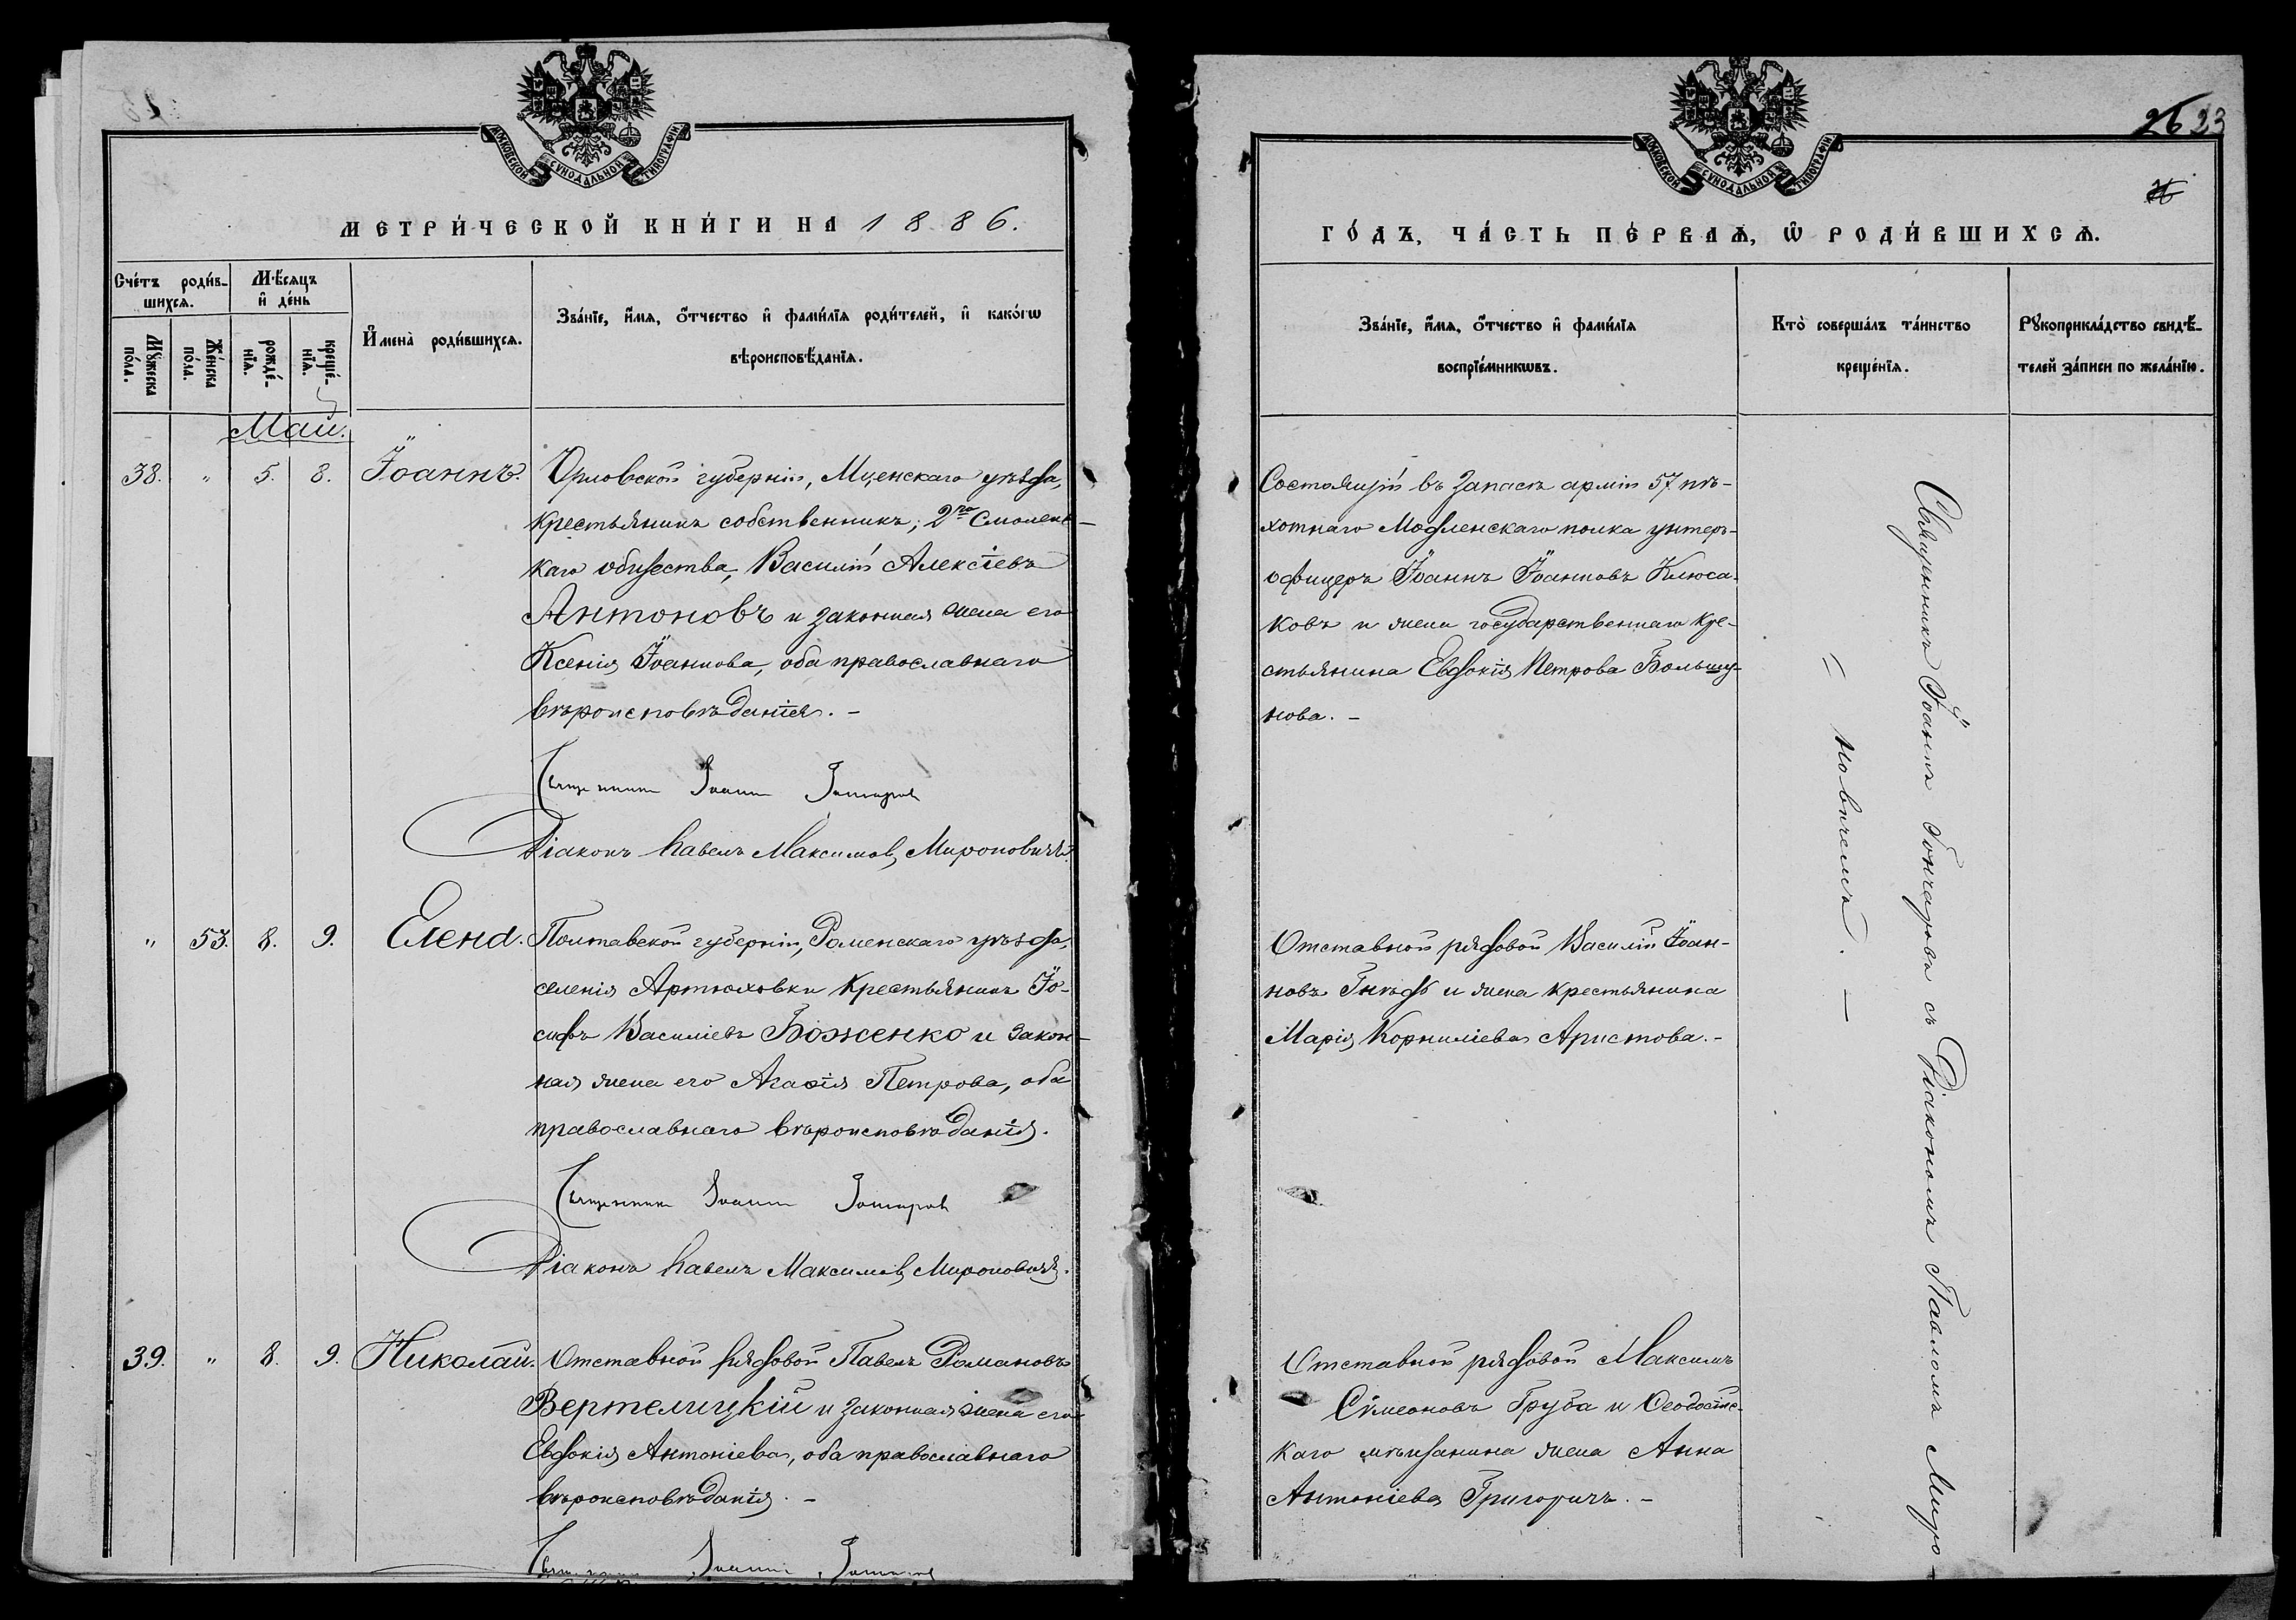 МОСКОВСКОЙ СѴНОДАЛЬНОЙ ТИПОГРАФІИ
МЕТРИ́ЧЕСКОЙ КНИ́ГИ НА 1886.
Сче́тъ роди́в-
шихсѧ.
Мѣ́сяцъ
и҆ де́нь
Мꙋ́жеска
по́ла.
Же́нска
по́ла.
рожде́-
нїѧ.
креще́-
нїѧ.
И҆мена̀ роди́вшихсѧ.
Зва́нїе, и҆́мѧ, ѻ҆́тчество и҆ фами́лїѧ роди́телей, и҆ како́гѡ
вѣроисповѣ́данїѧ.
Май.
38. " 5. 8. Іоаннъ.
Орловской губерніи, Мценскаго уѣзда,
крестьянинъ собственникъ, 2го Смоленс-
каго общества, Василій Алексіевъ
Антоновъ и законная жена его
Ксенія Іоаннова, оба православнаго
вѣроисповѣданія. -
Священникъ Іоаннъ Гончаровъ
Діаконъ Павелъ Максимовъ Мироновичъ.
" 53. 8. 9. Елена.
Полтавской губерніи, Роменскаго уѣзда,
селенія Артюховки крестьянинъ Іо-
сифъ Василіевъ Боженко и закон-
ная жена его Агафія Петрова, оба
православнаго вѣроисповѣданія.
Священникъ Іоаннъ Гончаровъ
Діаконъ Павелъ Максимовъ Мироновичъ.
39. " 8. 9. Николай.
Отставной рядовой Павелъ Романовъ
Вертелицкій и законная жена его
Евдокія Антоніева, оба православнаго
вѣроисповѣданія. -
Священникъ Іоаннъ Гончаровъ
26 23
МОСКОВСКОЙ СѴНОДАЛЬНОЙ ТИПОГРАФІИ
ГО́ДЪ, ЧА́СТЬ ПЕ́РВАѦ, Ѡ҆ РОДИ́ВШИХСѦ.
Зва́нїе, и҆́мѧ, ѻ҆́тчество и҆ фами́лїѧ
воспрїе́мникѡвъ.
Кто̀ соверша́лъ та́инство
креще́нїѧ.
Рꙋкоприкла́дство свидѣ́-
телей за́писи по жела́нїю.
Состоящій въ запасѣ арміи 57 пѣ-
хотнаго Модленскаго полка унтеръ-
офицеръ Іоаннъ Іоанновъ Клюса-
ковъ и жена государственнаго кре-
стьянина Евдокія Петрова Большу-
нова. -
Отставной рядовой Василій Іоан-
новъ Гнѣдъ и жена крестьянина
Марія Корниліева Аристова. -
Отставной рядовой Максимъ
Симеоновъ Груба и Ѳеодосійс-
каго мѣщанина жена Анна
Антоніева Григоричъ. -
Священникъ Іоаннъ Гончаровъ съ Діакономъ Павломъ Миро-
= новичемъ. -